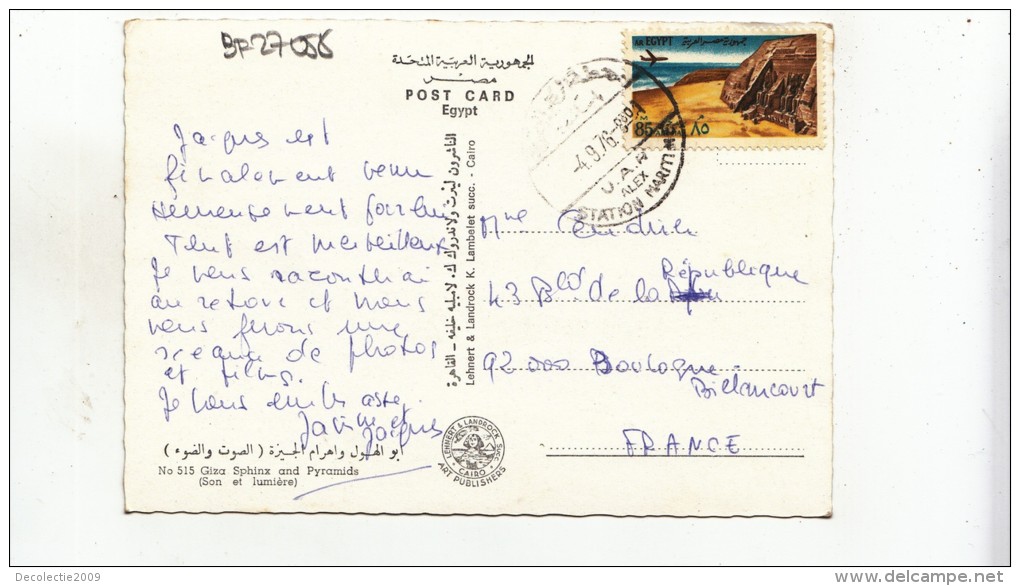 BP27056
الجمهورية العربية المتحدة
مصر
POST CARD
Egypt
AR EGYPT جمهورية مصر العربية
85 ٨٥
-4.9.76
U.A.R
ALEX
STATION MARITIME
Jacques est
finalement venu
Tout est merveilleux
Je vous raconterai
au retour et nous
vous ferons une
séance de photos
et films.
Je vous embrasse
Janine et
Jacques
الناشرون لينرت ولاندروك ك. لامبليه خليفه - القاهرة
Lehnert & Landrock K. Lambelet succ. - Cairo
Mme
43 Bld de la République
92000 Boulogne
Billancourt
FRANCE
LEHNERT & LANDROCK SUCC.
CAIRO
ART PUBLISHERS
أبو الهول وأهرام الجيزة ( الصوت والضوء )
No 515 Giza Sphinx and Pyramids
(Son et lumière)
Decolectie2009
delcampe.net